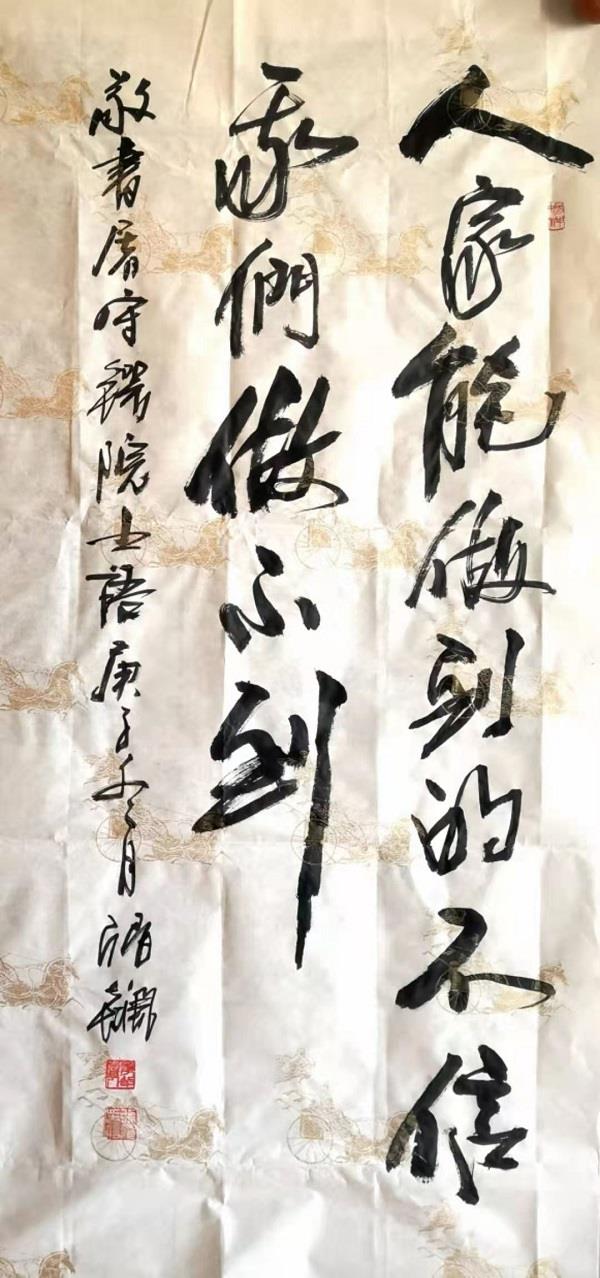 人家能做到的不信
我們做不到
敬書屠守锷院士語庚子年二月